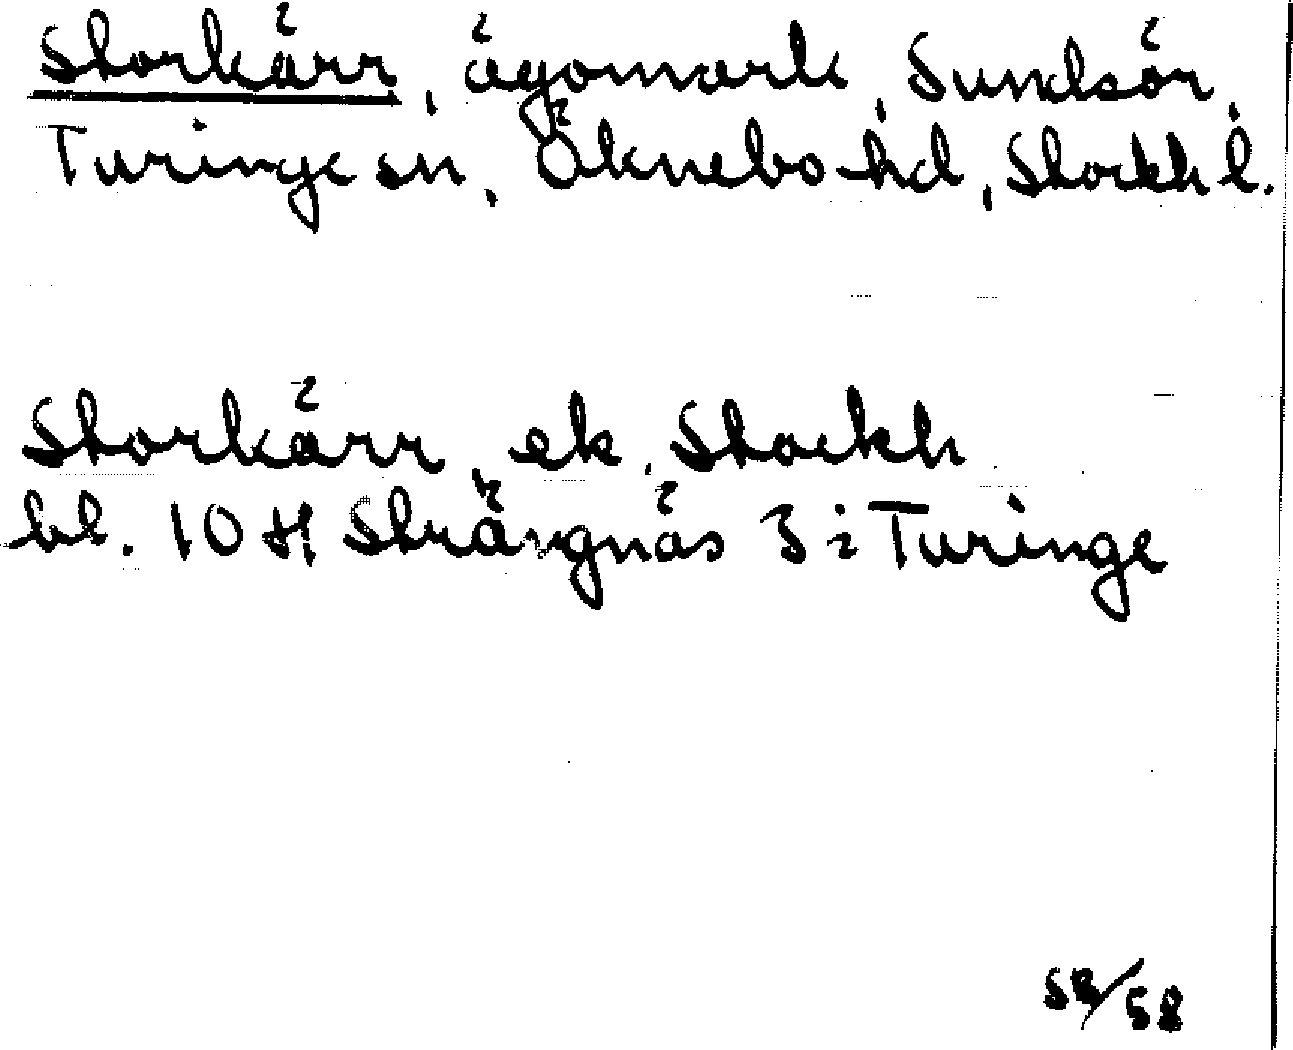 Storkärr, ägomark, Sundsör,
Turinge sn, Öknebo hd, Stockh l.
Storkärr, ek, Stockh
bl. 10 H Strängnäs 3 i Turinge
58/58